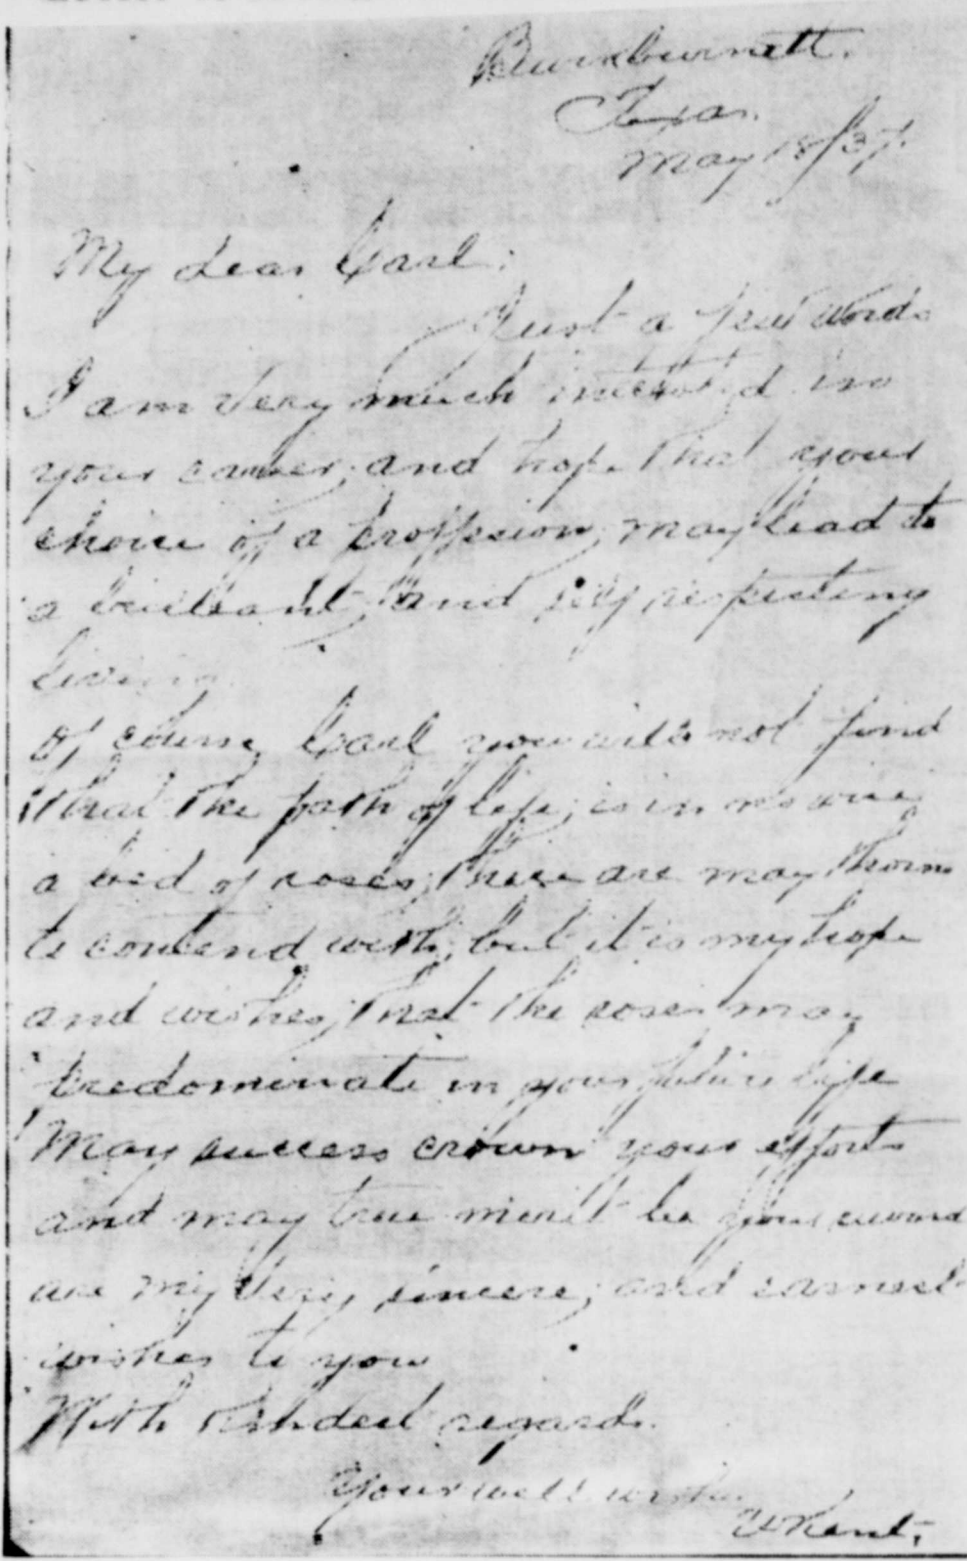 Burkburnett.
Texas.
May 18/37.
My dear Carl;
Just a few words
I am very much interested in
your career; and hope that your
choice of a proffesion; may lead to
a brilliant; and self respecting
living.
Of course Carl you will not find
that the path of life; is in no wise
a bed of roses; there are may thorns
to contend with; but it is my hope
and wishes; that the roses may
predominate in your future life
May success crown your efforts
and may true merit be your reward
are my very sincere; and earnest
wishes to you
With kindest regards.
Your well wisher
Kent.